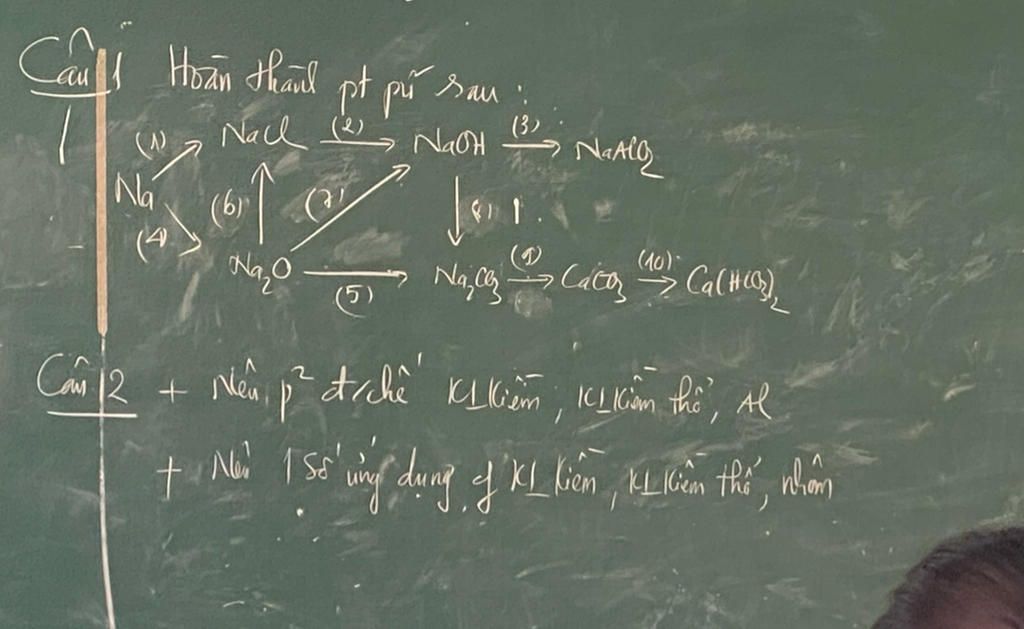 Câu 1 Hoàn thành pt pứ sau :
(1) NaCl (2) NaOH (3) NaAlO2
Na (6) (7) (8)
(4)
Na2O (5) Na2CO3 (9) CaCO3 (10) Ca(HCO3)2
Câu 2 + Nêu p2 đ/chế KLKiềm, KLKiềm thổ, Al
+ Nêu 1 số ứng dụng of KL Kiềm, KLKiềm thổ, nhôm